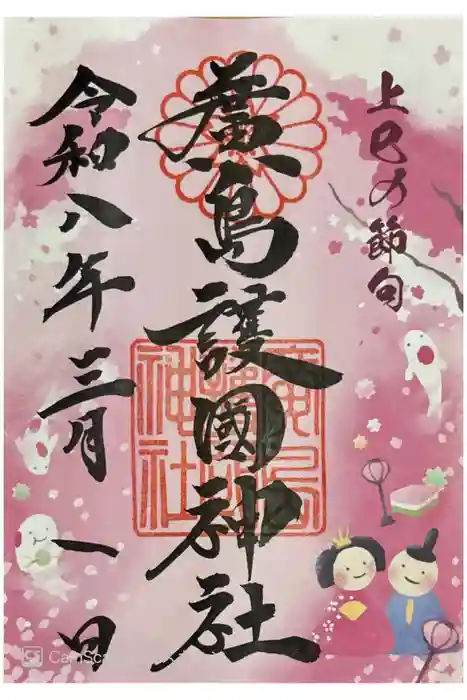 上巳の節句
廣島護國神社
令和八年三月一日
廣島護國神社
CamSc